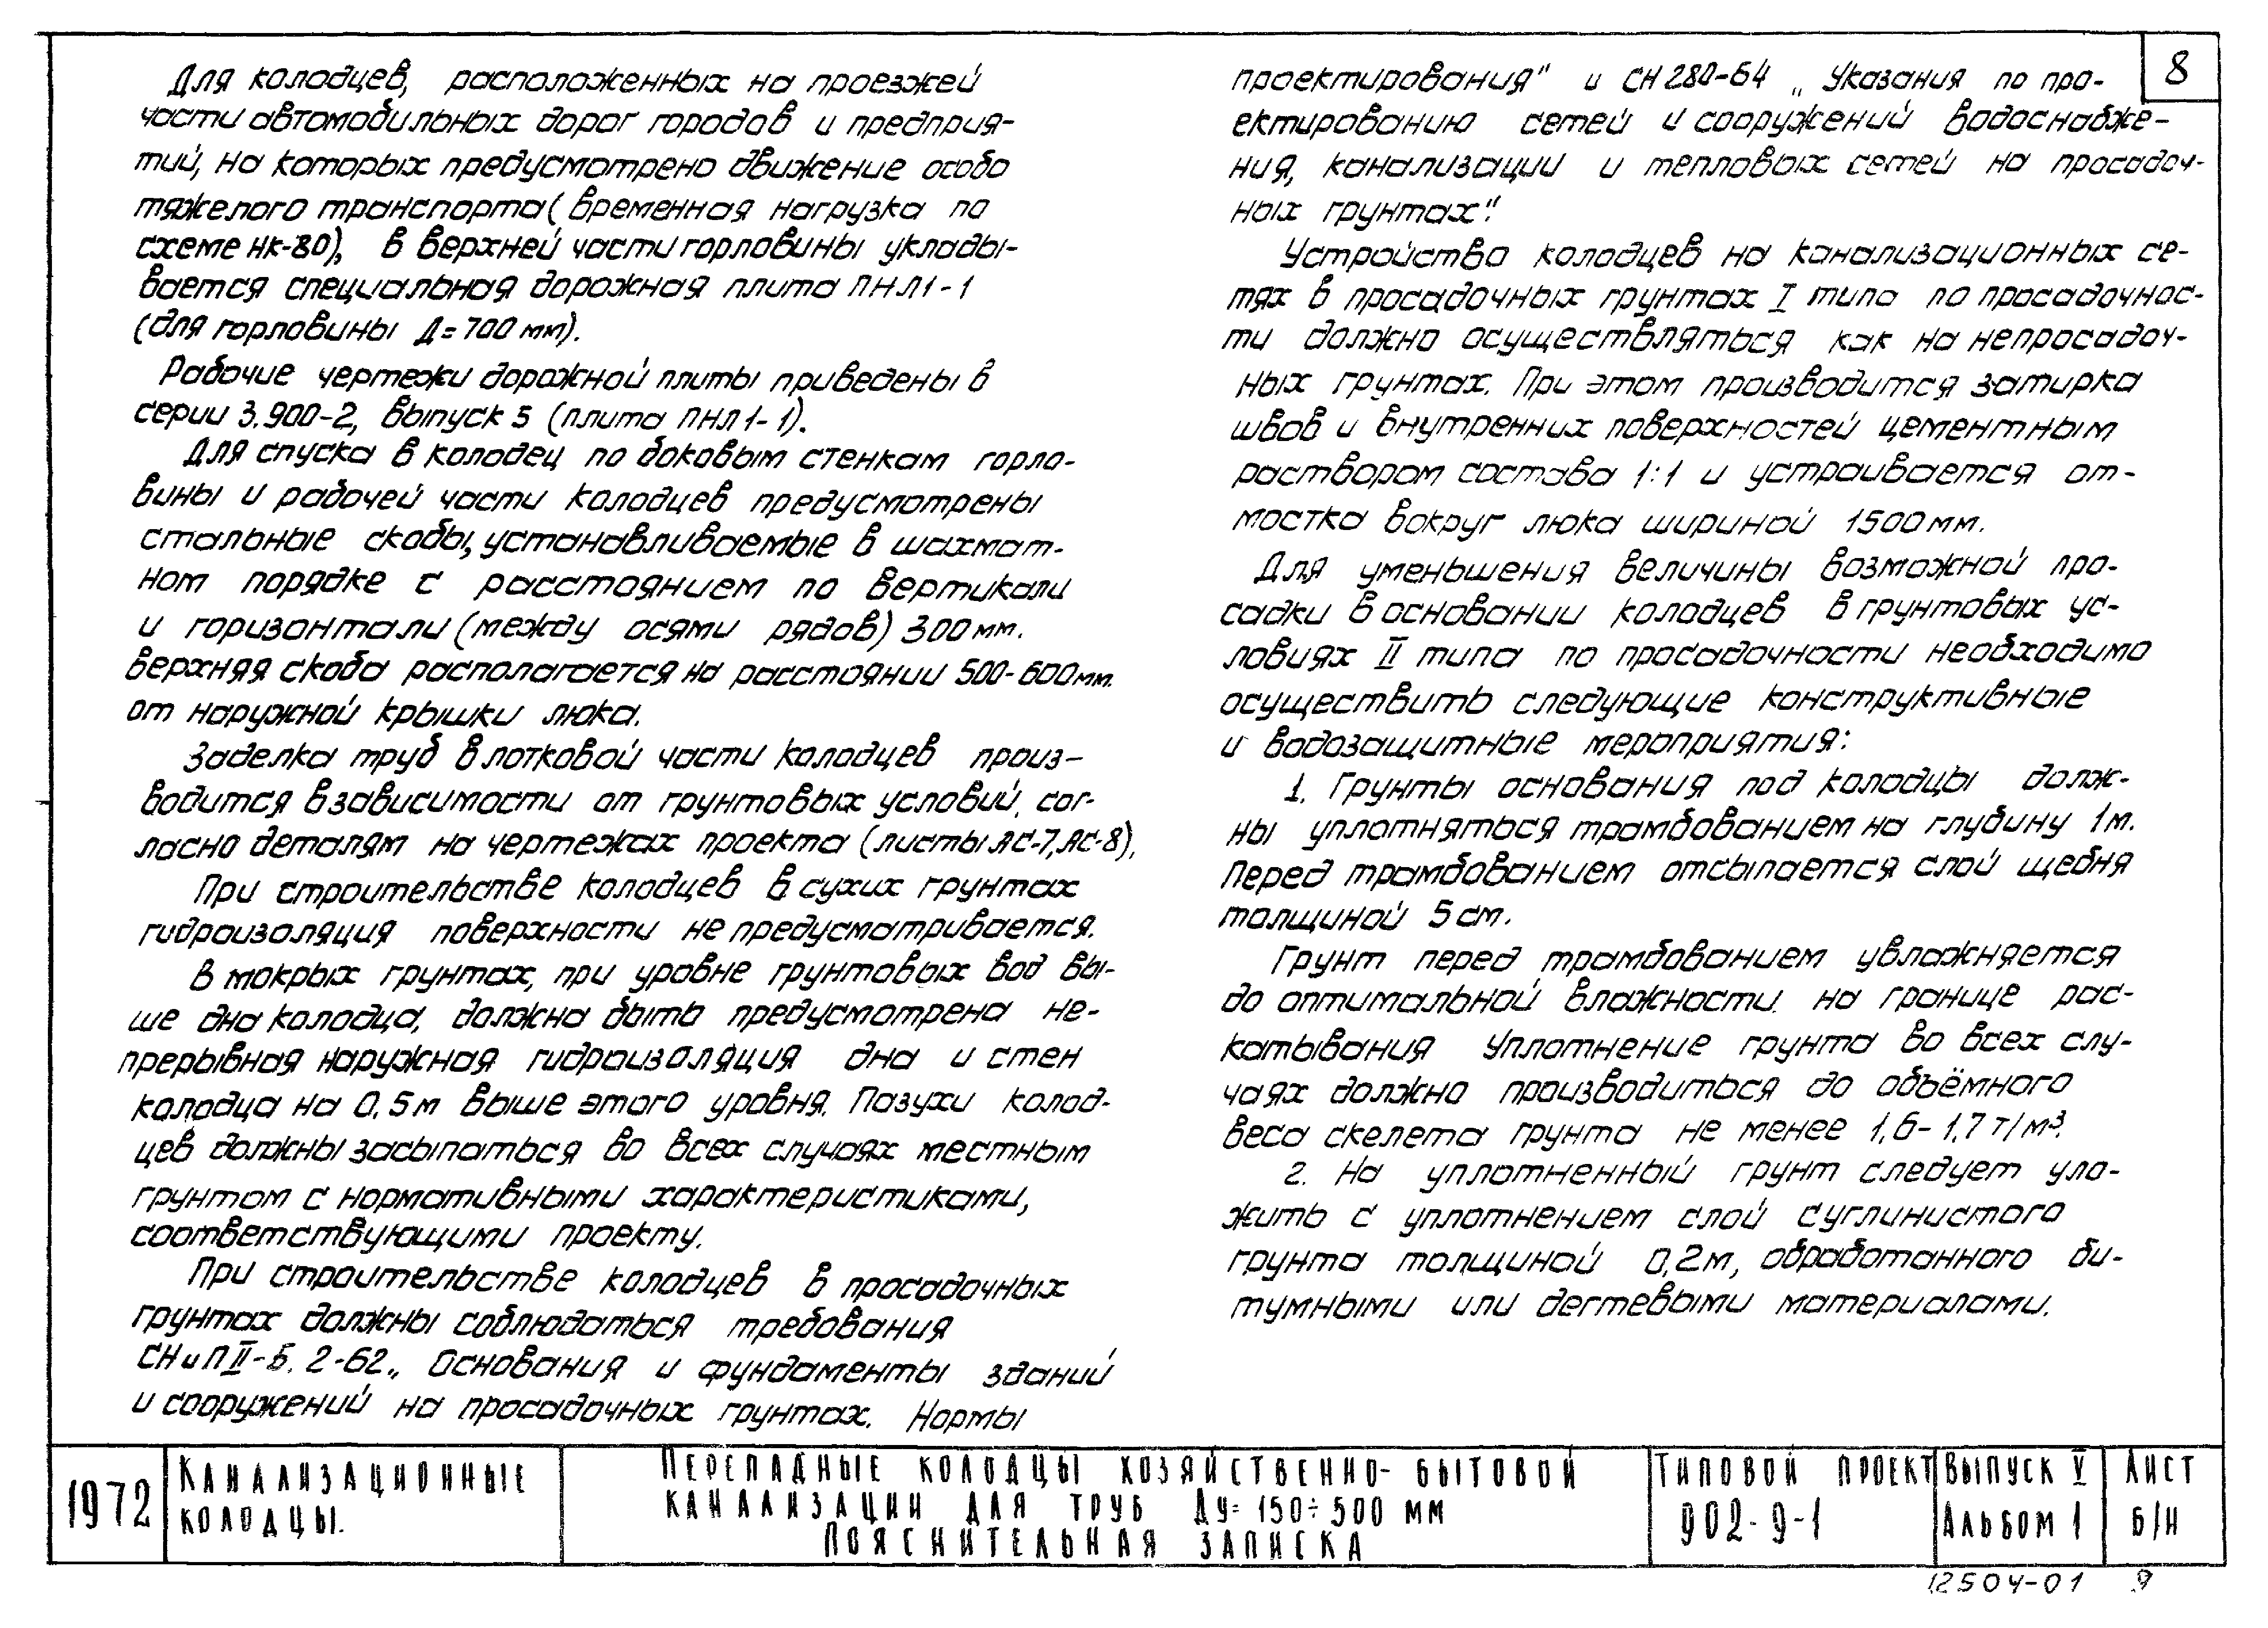 8
Для колодцев, расположенных на проезжей
части автомобильных дорог городов и предприя-
тий, на которых предусмотрено движение особо
тяжелого транспорта (временная нагрузка по
схеме НК-80), в верхней части горловины уклады-
вается специальная дорожная плита ПНЛ1-1
(для горловины Д=700мм).
Рабочие чертежи дорожной плиты приведены в
серии 3.900-2, выпуск 5 (плита ПНЛ1-1).
Для спуска в колодец по боковым стенкам горло-
вины и рабочей части колодцев предусмотрены
стальные скобы, устанавливаемые в шахмат-
ном порядке с расстоянием по вертикали
и горизонтали (между осями рядов) 300мм.
верхняя скоба располагается на расстоянии 500-600мм.
от наружной крышки люка.
Заделка труб в лотковой части колодцев произ-
водится в зависимости от грунтовых условий, сог-
ласно деталям на чертежах проекта (листы АС-7, АС-8),
При строительстве колодцев в сухих грунтах
гидроизоляция поверхности не предусматривается.
В мокрых грунтах, при уровне грунтовых вод вы-
ше дна колодца, должна быть предусмотрена не-
прерывная наружная гидроизоляция дна и стен
колодца на 0,5м выше этого уровня. Пазухи колод-
цев должны засыпаться во всех случаях местным
грунтом с нормативными характеристиками,
соответствующими проекту.
При строительстве колодцев в просадочных
грунтах должны соблюдаться требования
СНиП II-Б. 2-62 „Основания и фундаменты зданий
и сооружений на просадочных грунтах. Нормы
проектирования" и СН 280-64 „Указания по про-
ектированию сетей и сооружений водоснабже-
ния, канализации и тепловых сетей на просадоч-
ных грунтах".
Устройство колодцев на канализационных се-
тях в просадочных грунтах I типа по просадочнос-
ти должно осуществляться как на непросадоч-
ных грунтах. При этом производится затирка
швов и внутренних поверхностей цементным
раствором состава 1:1 и устраивается от-
мостка вокруг люка шириной 1500мм.
Для уменьшения величины возможной про-
садки в основании колодцев в грунтовых ус-
ловиях II типа по просадочности необходимо
осуществить следующие конструктивные
и водозащитные мероприятия:
1. Грунты основания под колодцы долж-
ны уплотняться трамбованием на глубину 1м.
Перед трамбованием отсыпается слой щебня
толщиной 5см.
Грунт перед трамбованием увлажняется
до оптимальной влажности на границе рас-
катывания Уплотнение грунта во всех слу-
чаях должно производиться до объёмного
веса скелета грунта не менее 1,6-1,7 т/м³.
2. На уплотненный грунт следует уло-
жить с уплотнением слой суглинистого
грунта толщиной 0,2м, обработанного би-
тумными или дегтевыми материалами.
1972
Канализационные
колодцы.
Перепадные колодцы хозяйственно-бытовой
канализации для труб Ду=150÷500 мм
Пояснительная записка
Типовой проект
902-9-1
Выпуск V
Альбом 1
Лист
Б/Н
12504-01 9